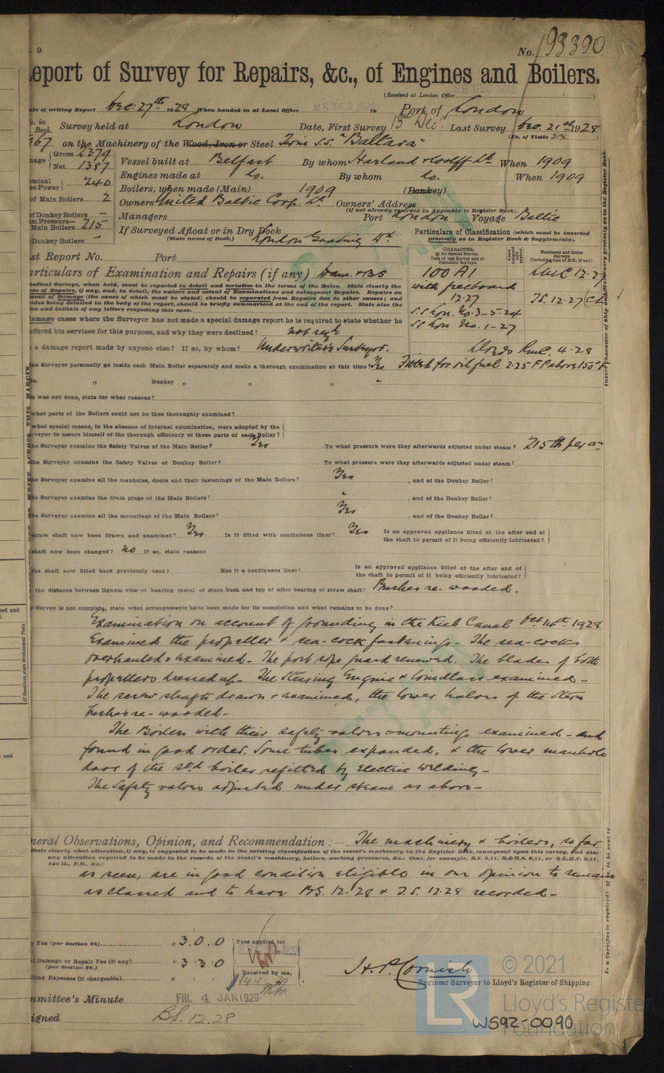 9
No. 193390
eport of Survey for Repairs, &c., of Engines and Boilers.
(Received at London Office
ate of writing Report Dec. 27th 1928 When handed in at Local Office
Port of London
Survey held at London Date, First Survey 13 Dec. Last Survey Dec. 21st 1928
Book.
(No. of Visits
967 on the Machinery of the Wood, Iron or Steel Twin S.S. "Baltara"
Gross 2379
Net 1387
Vessel built at Belfast By whom Harland & Wolff Ld. When 1909
Engines made at do. By whom do. When 1909
Power 240
Boilers, when made (Main) 1909 (Donkey)
of Main Boilers 2
Owners United Baltic Corp. Ld. Owners' Address
(If not already recorded in Appendix to Register Book.)
of Donkey Boilers –
Managers Port London Voyage Baltic
Main Boilers 215
If Surveyed Afloat or in Dry Dock
(State name of Dock.) London Graving Dk.
Donkey Boilers –
Particulars of Classification (which must be inserted
precisely as in Register Book & Supplements).
st Report No. Port
articulars of Examination and Repairs (if any) Dam. & BS
100 A1
with freeboard
12.27
S.S. Lon. No. 3-5-24
S.S. Lon. No. 1-27
LMC 12.27
T.S. 12.27 CL
Lloyds RMC. 4-28
Fitted for oil fuel 2.25 F.P. above 150°F
amage cases where the Surveyor has not made a special damage report he is required to state whether he
offered his services for this purpose, and why they were declined? not reqd.
a damage report made by anyone else? If so, by whom? Underwriters Surveyor.
the Surveyor personally go inside each Main Boiler separately and make a thorough examination at this time? Yes
Do. " Donkey " " "
this was not done, state for what reasons?
what parts of the Boilers could not be thus thoroughly examined?
what special means, in the absence of internal examination, were adopted by the
rveyor to assure himself of the thorough efficiency of those parts of each Boiler?
the Surveyor examine the Safety Valves of the Main Boiler? Yes To what pressure were they afterwards adjusted under steam? 215 lb per □"
the Surveyor examine the Safety Valves of Donkey Boiler? To what pressure were they afterwards adjusted under steam?
the Surveyor examine all the manholes, doors and their fastenings of the Main Boilers? Yes , and of the Donkey Boiler?
the Surveyor examine the drain plugs of the Main Boilers? " , and of the Donkey Boiler?
the Surveyor examine all the mountings of the Main Boilers? Yes , and of the Donkey Boiler?
screw shaft now been drawn and examined? Yes Is it fitted with continuous liner? Yes Is an approved appliance fitted at the after end of
the shaft to permit of it being efficiently lubricated?
shaft now been changed? No If so, state reasons
the shaft now fitted been previously used? Has it a continuous liner? Is an approved appliance fitted at the after end of
the shaft to permit of it being efficiently lubricated?
the distance between lignum vitæ or bearing metal of stern bush and top of after bearing of screw shaft? Bushes re-wooded.
the Survey is not complete, state what arrangements have been made for its completion and what remains to be done?
Examination on account of grounding in the Kiel Canal Dec 4th 1928
Examined the propeller & sea-cock fastenings. The sea-cocks
overhauled & examined. The port rope guard renewed. The blades of both
propellers dressed up. The Steering Engine & Windlass examined.
The screw shafts drawn & examined, the lower halves of the Stern
bushes re-wooded.
The Boilers with their safety valves & mountings examined and
found in good order. Some tubes expanded, & the lower manhole
door of the stbd boiler refitted by Electric Welding.
The Safety valves adjusted under steam as above.
neral Observations, Opinion, and Recommendation :— The machinery & boilers, so far
as seen, are in good condition eligible in our opinion to remain
as classed and to have B.S. 12.28 & T.S. 12.28 recorded.
y Fee (per Section 28) £ 3.0.0
Damage or Repair Fee (if any) £ 3.3.0
(per Section 28.)
lling Expenses (if chargeable) £
Fees applied for
Received by me,
H. P. Cornish
Engineer Surveyor to Lloyd's Register of Shipping.
mmittee's Minute FRI. 4 JAN 1929
signed B.S. 12.28
W592-0090
© 2021
LR
Lloyd's Register
Foundation